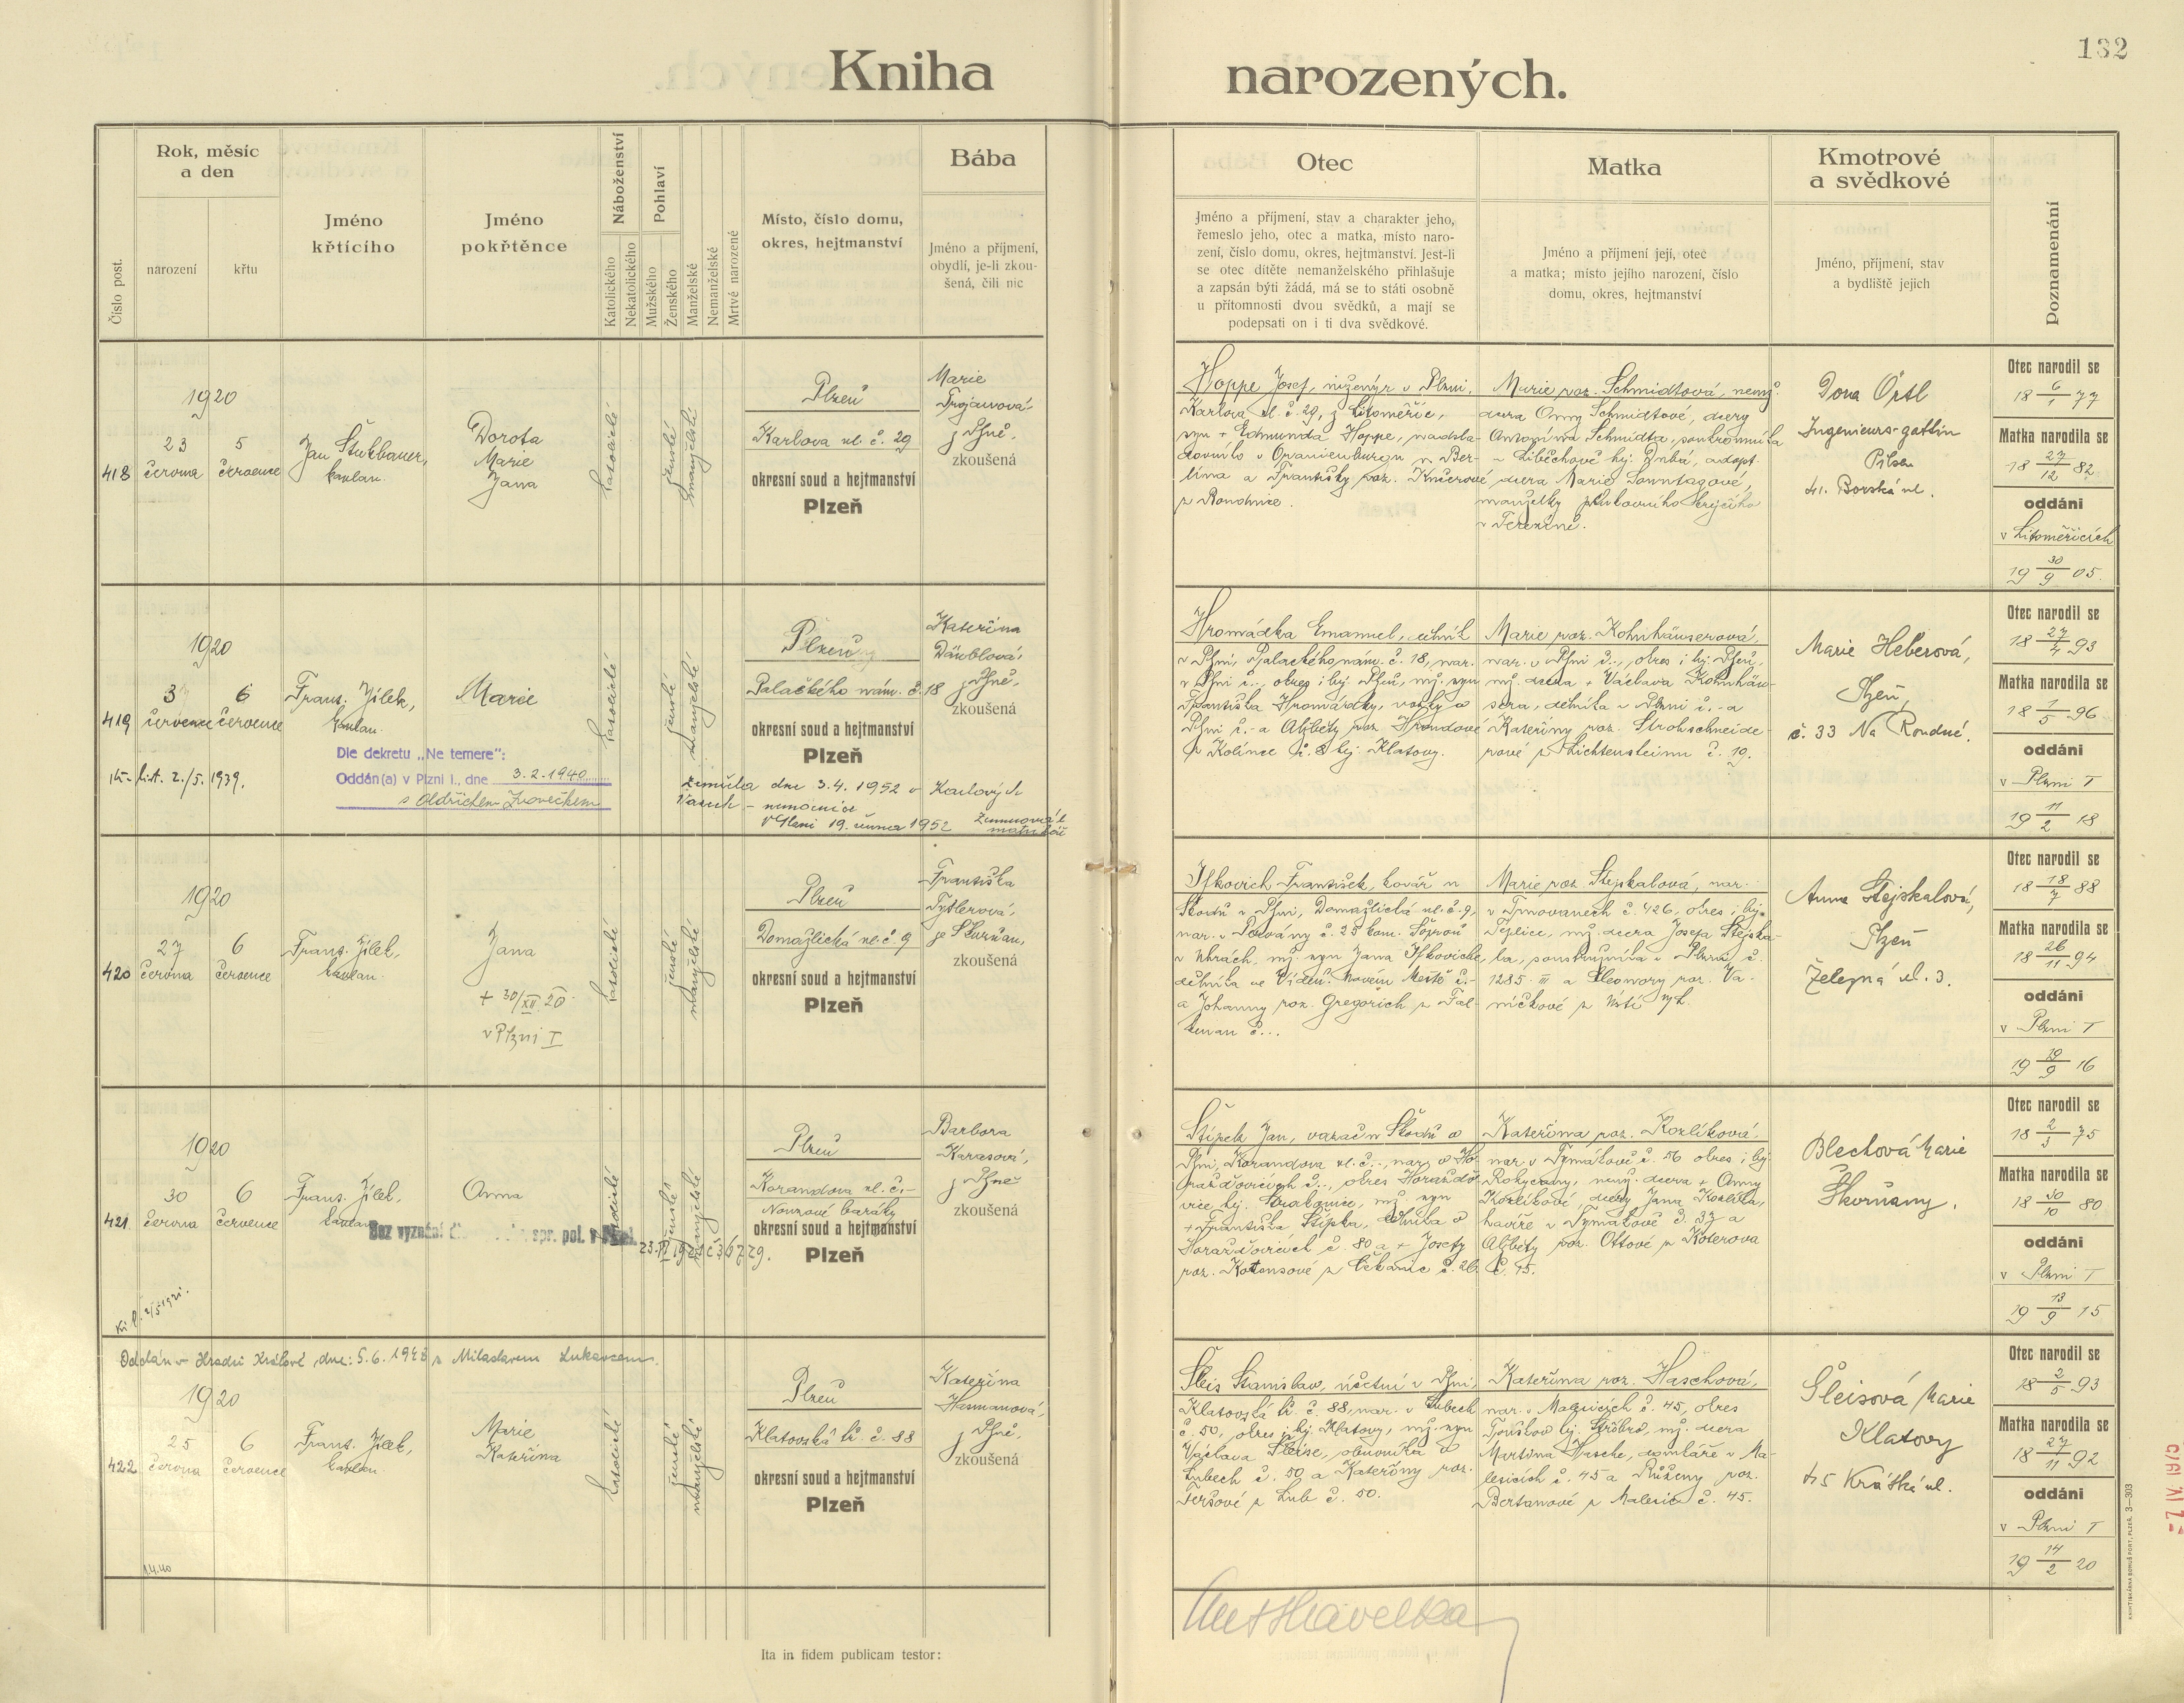 132
Kniha narozených.
Číslo post.
Rok, měsíc
a den
narození
křtu
Jméno
křtícího
Jméno
pokřtěnce
Náboženství
Katolického
Nekatolického
Pohlaví
Mužského
Ženského
Manželské
Nemanželské
Mrtvě narozené
Místo, číslo domu,
okres, hejtmanství
Bába
Jméno a příjmení,
obydlí, je-li zkou-
šená, čili nic
Otec
Jméno a příjmení, stav a charakter jeho,
řemeslo jeho, otec a matka, místo naro-
zení, číslo domu, okres, hejtmanství. Jest-li
se otec dítěte nemanželského přihlašuje
a zapsán býti žádá, má se to státi osobně
u přítomnosti dvou svědků, a mají se
podepsati on i ti dva svědkové.
Matka
Jméno a příjmení její, otec
a matka; místo jejího narození, číslo
domu, okres, hejtmanství
Kmotrové
a svědkové
Jméno, příjmení, stav
a bydliště jejich
Poznamenání
418
1920
23
června
5
července
Jan
kaplan.
Dorota
Marie
Jana
katolické
ženské
manželské
Plzeň
Karlova ul. č. 29
okresní soud a hejtmanství
Plzeň
Marie
Trojanová,
z Plzně,
zkoušená
Hoppe Josef, inženýr v Plzni,
Karlova ul. č. 29, z Litoměřic,
syn + Edmunda Hoppe,
v Oranienburgu u Ber-
lína a Františky roz.
z Roudnice.
Marie roz. Schmidtová, nemž.
dcera Anny Schmidtové, dcery
Antonína Schmidta, soukromníka
v Liběchově hej. Dubá, adopt.
dcera Marie Sonntagové,
manželky
v Terezíně.
Dora Örtl
Ingenieurs-gattin
Pilsen
41. Borská ul.
Otec narodil se
18 6/1 77
Matka narodila se
18 27/12 82
oddáni
v Litoměřicích
19 30/9 05.
419
1920
3
července
6
července
Frant. Jílek,
kaplan.
Marie
katolické
ženské
manželské
Plzeň
Palackého nám. č. 18
okresní soud a hejtmanství
Plzeň
Kateřina
Däublová,
z Plzně,
zkoušená
lit. 2./5. 1939.
Dle dekretu „Ne temere“:
Oddán(a) v Plzni I., dne 3.2.1940
s Oldřichem
zemřela dne 3.4.1952 v Karlových
Varech – nemocnice
V Plzni 19. února 1952
Hromádka Emanuel,
v Plzni, Palackého nám. č. 18, nar.
v Plzni č. -, okres i hej. Plzeň, mž. syn
Františka Hromádky,
Plzni č. - a Alžběty roz.
z Kolince č. 8 hej. Klatovy.
Marie roz. Kohnhäuserová,
nar. v Plzni č. -, okres i hej. Plzeň,
mž. dcera + Václava Kohnhäu-
sera, dělníka v Plzni č. - a
Kateřiny roz. Strohschneide-
rové z Lichtensteinu č. 19.
Marie Heberová,
Plzeň,
č. 33 Na Roudné.
Otec narodil se
18 27/4 93
Matka narodila se
18 1/5 96
oddáni
v Plzni I
19 11/2 18
420
1920
27
června
6
července
Frant. Jílek,
kaplan.
Jana
+ 30/XII. 20
v Plzni I
katolické
ženské
manželské
Plzeň
Domažlická ul. č. 9
okresní soud a hejtmanství
Plzeň
Františka
Tytlerová,
ze Skvrňan,
zkoušená
Ifkovich František, kovář u
Škodů v Plzni, Domažlická ul. č. 9,
nar. v č. 25 kom. Šoproň
v Uhrách, mž. syn Jana Ifkoviche,
dělníka ve Vídeň. Novém Městě č. -
a Johanny roz. Gregorich z Fal-
kenau č...
Marie roz. Stejskalová, nar.
v Trnovanech č. 426, okres i hej.
Teplice, mž. dcera Josefa Stejska-
la, soustružníka v Plzni č.
1285. III a Eleonory roz. Va-
níčkové z Ústí n/L.
Anna Stejskalová,
Plzeň
Železná ul. 3.
Otec narodil se
18 18/7 88
Matka narodila se
18 26/11 94
oddáni
v Plzni I
19 19/9 16
421
1920
30
června
6
července
Frant. Jílek,
kaplan
Anna
katolické
ženské
manželské
Bez vyznání spr. pol. v
Plzeň
Korandova ul. č. -
Nouzové baráky
okresní soud a hejtmanství
Plzeň
Barbora
Karasová,
z Plzně
zkoušená
Štípek Jan, vazač u Škodů v
Plzni, Korandova ul. č. -, nar. v Ho-
ražďovicích č. -, okres Horažďo-
vice hej. Strakonice, mž. syn
+ Františka Štípka, dělníka v
Horažďovicích č. 80 a + Josefy
roz. z Čekanic č. 26.
Kateřina roz. Kozlíková,
nar. v Tymákově č. 56 okres i hej.
Rokycany, nemž. dcera + Anny
Kozlíkové, dcery Jana Kozlíka,
havíře v Tymákově č. 37 a
Alžběty roz. Ottové z Koterova
č. 15.
Blechová Marie
Škvrňany.
Otec narodil se
18 2/3 75
Matka narodila se
18 30/10 80
oddáni
v Plzni I
19 13/9 15
Oddána v Hradci Králové dne: 5.6.1948 s Miloslavem Lukavcem.
422
1920
25
června
6
července
Frant. Jílek,
kaplan
Marie
Kateřina
katolické
ženské
manželské
Plzeň
Klatovská tř. č. 88
okresní soud a hejtmanství
Plzeň
Kateřina
Hasmanová,
z Plzně,
zkoušená
Šleis Stanislav, účetní v Plzni,
Klatovská tř. č. 88, nar. v Lubech
č. 50, okres i hej. Klatovy, mž. syn
Václava Šleise, obuvníka v
Lubech č. 50 a Kateřiny roz.
Teršové z Lub č. 50.
Kateřina roz. Haschová,
nar. v Malesicích č. 45, okres
Touškov hej. Stříbro, mž. dcera
Martina Hasche, domkáře v Ma-
lesicích č. 45 a Růženy roz.
Bertanové z Malesic č. 45.
Šleisová Marie
Klatovy
45 Krátká ul.
Otec narodil se
18 2/5 93
Matka narodila se
18 27/11 92
oddáni
v Plzni I
19 14/2 20
Ant Havelka
Ita in fidem publicam testor: